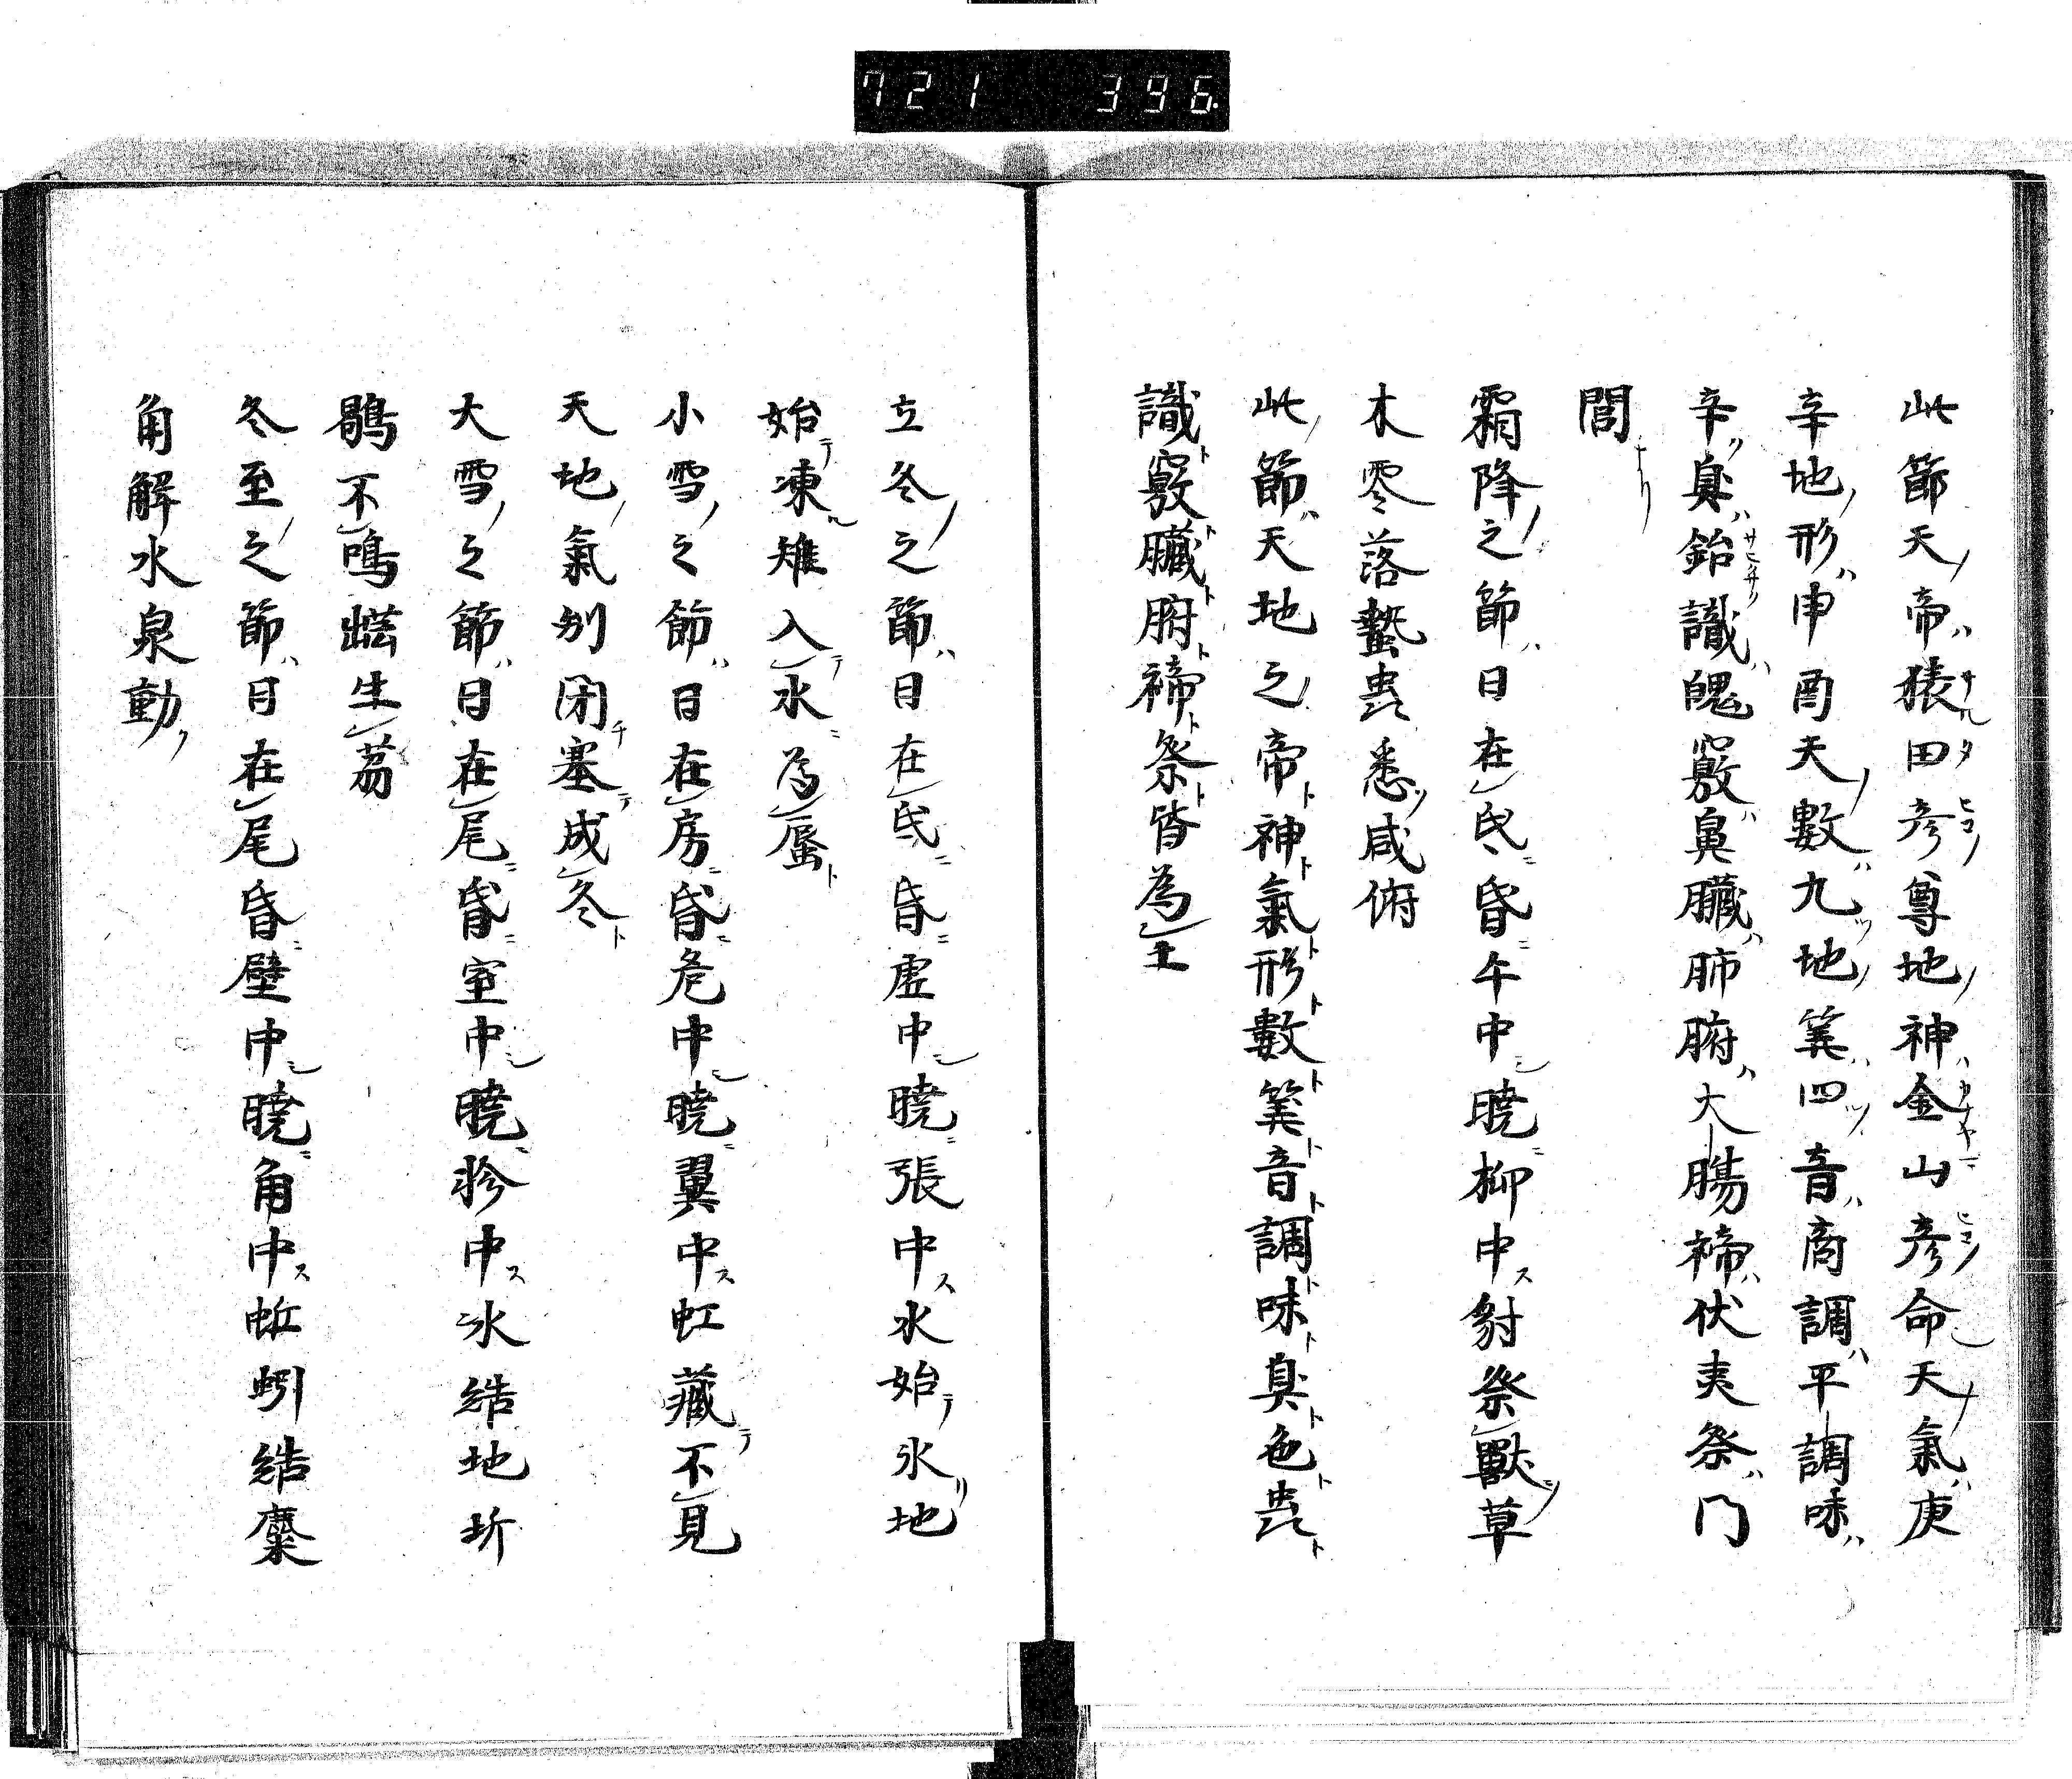 721 396.
此節天帝猿田彦尊地神金山彦命天氣庚
辛地形申酉天數九地筭四音商調平調味
辛臭鉛識魄竅鼻臓肺腑大腸禘伏夷祭門
間
霜降之節日在氐昏午中曉柳中豺祭獸草
木零落蟄虫悉咸俯
此節天地之帝神氣形數筭音調味臭色虫
識竅臓腑禘祭皆為土
立冬之節日在氐昏虚中曉張中水始氷地
始凍雉入水為蜃
小雪之節日在房昏危中曉翼中虹藏不見
天地氣別閉塞成冬
大雪之節日在尾昏室中曉軫中冰結地圻
鶡不鳴生茘
冬至之節日在尾昏壁中曉角中蚯蚓結麋
角解水泉動